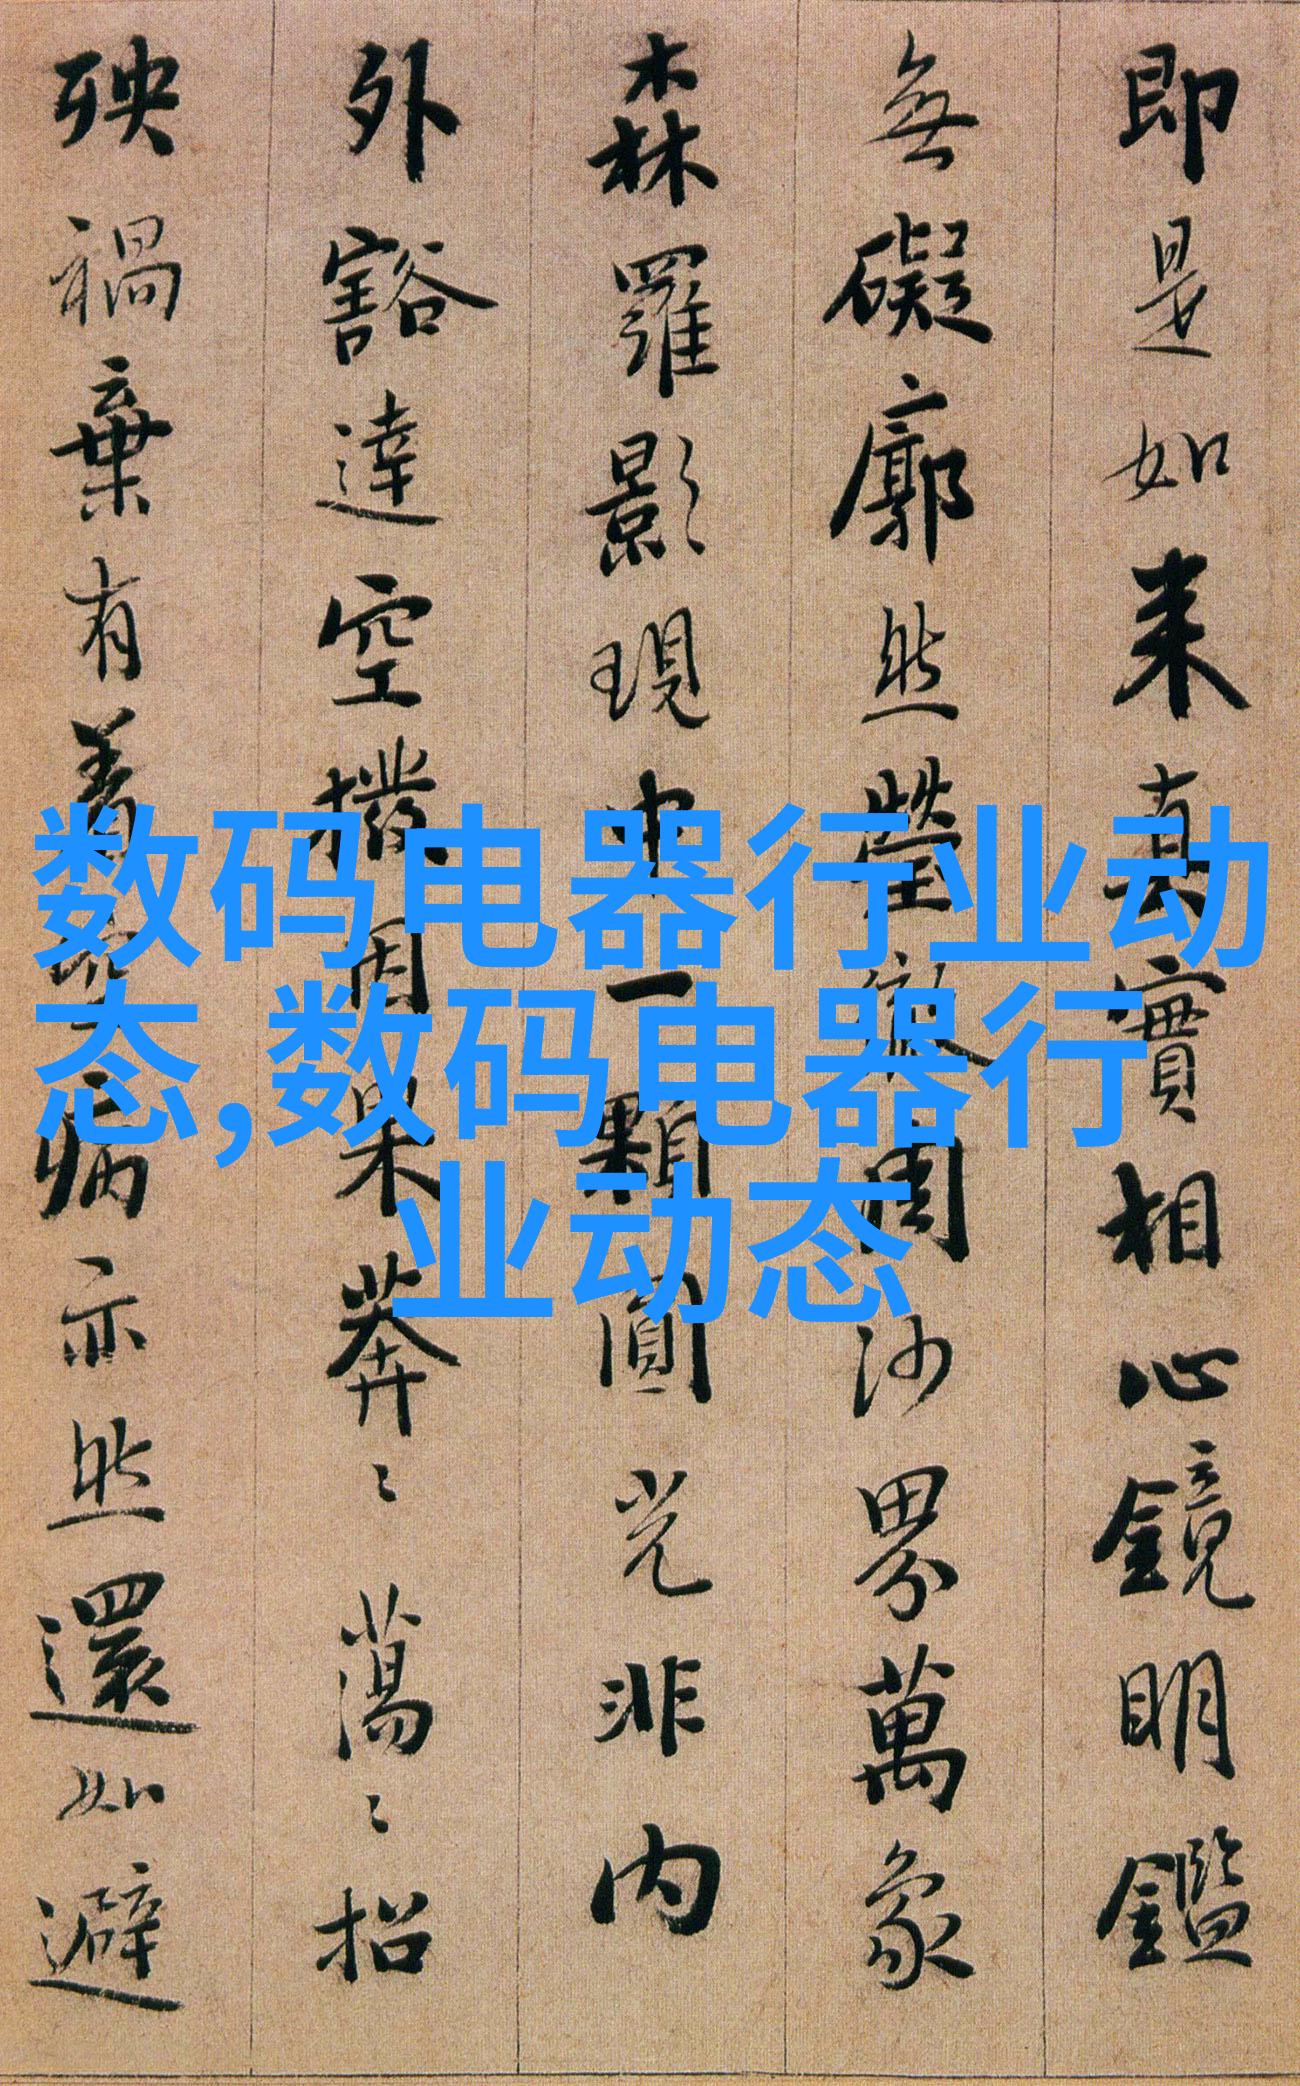 即是如来真實相心鏡明鑑
無礙廓然瑩徹周沙界萬象
森羅影現中一顆圓光非内
外豁達空撥因果莽〻蕩〻招
殃禍棄有著空病亦然還如避
数码电器行业动
态,数码电器行
业动态